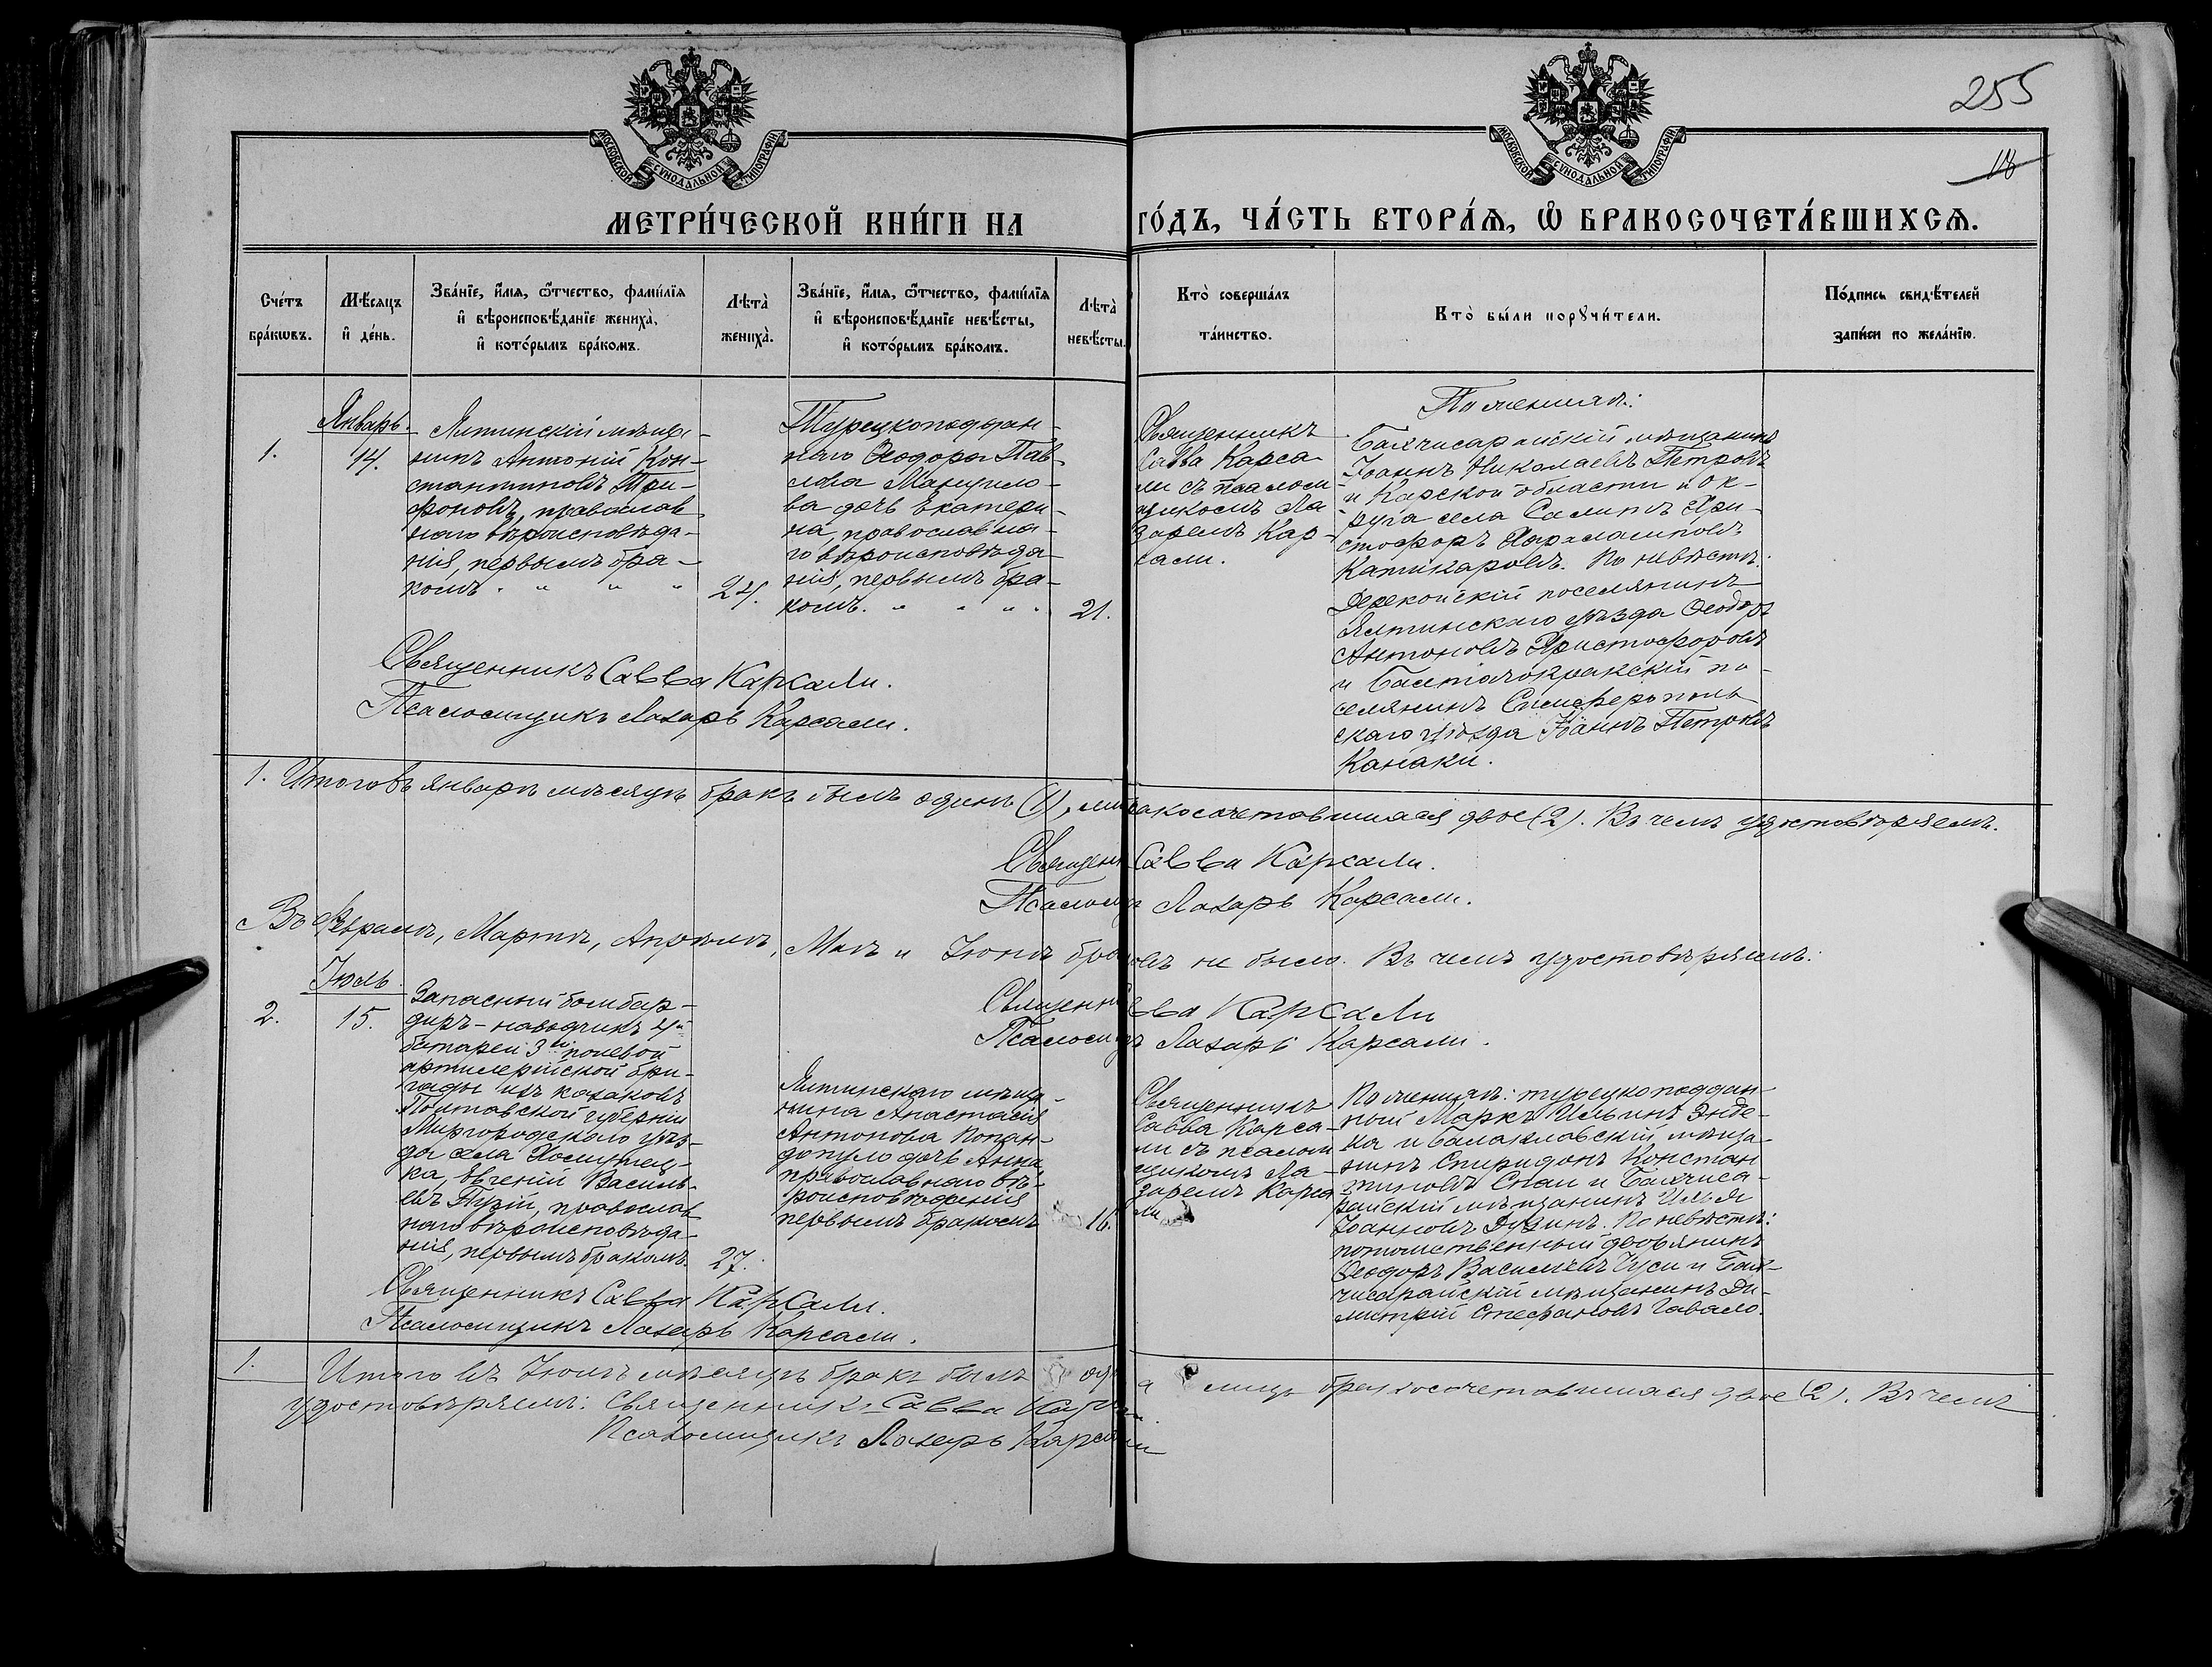 255
18
МОСКОВСКОЙ СѴНОДАЛЬНОЙ ТИПОГРАФІИ
МОСКОВСКОЙ СѴНОДАЛЬНОЙ ТИПОГРАФІИ
МЕТРИ́ЧЕСКОЙ КНИ́ГИ НА ГО́ДЪ, ЧА́СТЬ ВТОРА́Ѧ, Ѽ БРАКОСОЧЕТА́ВШИХСѦ.
Сче́тъ бра́кѡвъ.
Мѣ́сяцъ и҆ де́нь.
Зва́нїе, и҆́мѧ, ѻ҆́тчество, фами́лїѧ
и҆ вѣроисповѣ́данїе жениха̀,
и҆ кото́рымъ бра́комъ.
Лѣта̀ жениха̀.
Зва́нїе, и҆́мѧ, ѻ҆́тчество, фами́лїѧ
и҆ вѣроисповѣ́данїе невѣ́сты,
и҆ кото́рымъ бра́комъ.
Лѣта̀ невѣ́сты.
Кто̀ соверша́лъ
та́инство.
Кто̀ бы́ли порꙋчи́тели.
По́дпись свидѣ́телей
за́писи по жела́нїю.
1.
Январь.
14.
Ялтинскій мѣща-
нинъ Антоній Кон-
стантиновъ Три-
фоновъ, православ
наго вѣроисповѣда-
нія, первымъ бра-
комъ
24.
Турецкоподдан-
наго Ѳеодора Пав-
лова
ва дочь Екатери-
на, православна-
го вѣроисповѣда-
нія, первымъ бра-
комъ.
21.
Священникъ
Савва Карса-
ли съ псалом-
щикомъ Ла-
заремъ Кар-
сали.
По женихѣ:
Бахчисарайскій мѣщанинъ
Іоаннъ Николаевъ Петровъ
и Карской области и ок-
руга села Хри-
стофоръ Харалампіевъ
По невѣстѣ:
Дерекойскій поселянинъ
Ялтинскаго уѣзда Ѳеодоръ
Антоновъ Христофоровъ
и по-
селянинъ Симферополь
скаго уѣзда Іоаннъ Петровъ
Канаки.
Священникъ Савва Карсали.
Псаломщикъ Лазарь Карсали.
1. Итого въ январѣ мѣсяцѣ бракъ былъ одинъ (1), бракосочетавшихся двое (2). Въ чемъ удостовѣряемъ.
Священ Савва Карсали.
Псалом Лазарь Карсали.
Въ Февралѣ, Мартѣ, Апрѣлѣ, Маѣ и Іюнѣ браковъ не было. Въ чемъ удостовѣряемъ:
Священн Савва Карсали
Псаломщ Лазарь Карсали.
2.
Іюль.
15.
Запасный бомбар-
диръ-наводчикъ 4й
батареи 3ей полевой
артилерійской бри-
гады изъ казаковъ
Полтавской губерніи
Миргородскаго уѣз-
да села Хомутец-
ка, Евгеній Василь-
евъ православ
наго вѣроисповѣда-
нія, первымъ бракомъ.
27.
Ялтинскаго мѣща-
нина Анастасія
Антонова Попан-
допуло дочь Анна,
православнаго вѣ-
роисповѣданія
первымъ бракомъ
16.
Священникъ
Савва Карса-
ли съ псалом
щикомъ Ла-
заремъ Карса
ли
По женихѣ: турецкоподдан-
ный Маркъ Ильинъ
и Балаклавскій мѣща-
нинъ Спиридонъ Констан
тиновъ и Бахчиса-
райскій мѣщанинъ Илья
Іоанновъ По невѣстѣ:
потомственный дворянинъ
Ѳеодоръ Васильевъ и Бах-
чисарайскій мѣщанинъ Ди-
митрій Стефановъ Гавало.
Священникъ Савва Карсали.
Псаломщикъ Лазарь Карсали.
1. Итого въ Іюлѣ мѣсяцѣ бракъ былъ лицъ бракосочетавшихся двое (2). Въ чемъ
удостовѣряемъ: Священникъ Савва Карсали
Псаломщикъ Лазарь Карсали